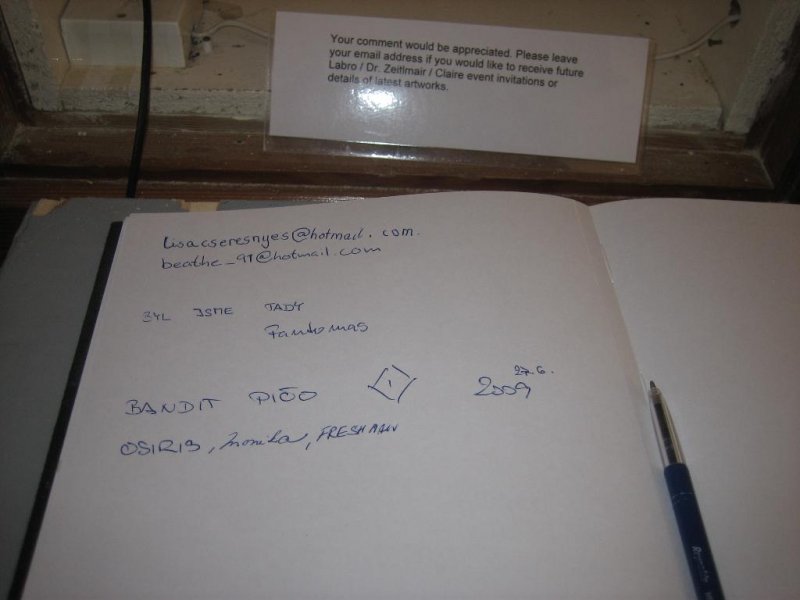 Your comment would be appreciated. Please leave
your email address if you would like to receive future
Labro / Dr. Zeitlmair / Claire event invitations or
details of latest artworks.
lisacseresnyes@hotmail.com.
beathe_91@hotmail.com
BYL JSME TADY
Fantomas
27.6.
BANDIT PIČO 2009
OSIRIS, Monika, FRESHMAN